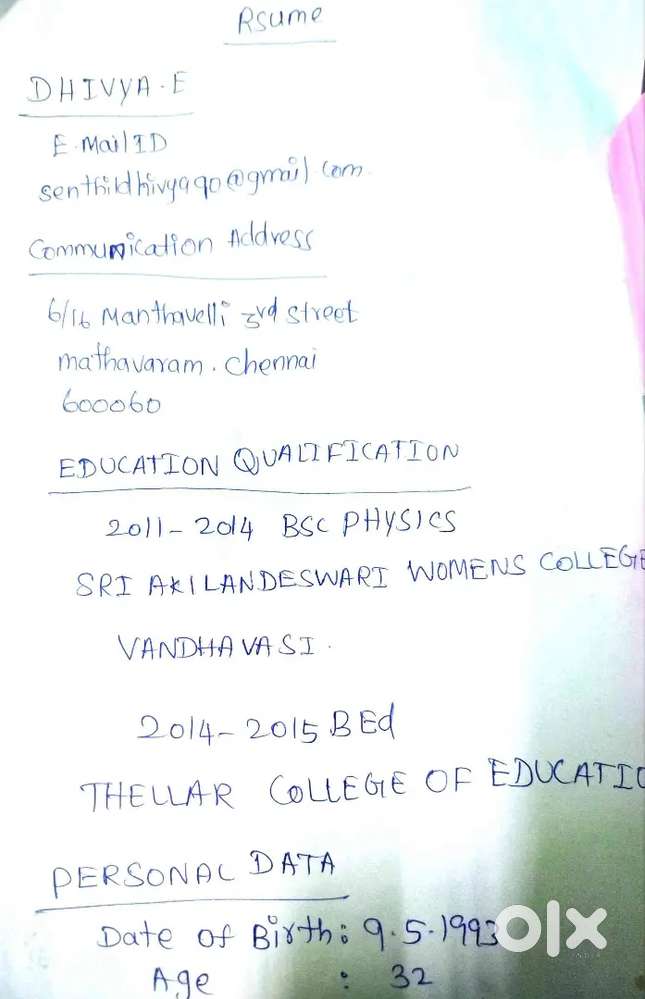 Rsume
DHIVYA.E
E.Mail ID
senthildhivya90@gmail.com
Communication Address
6/16 Manthavelli 3rd street
mathavaram. chennai
600060
EDUCATION QUALIFICATION
2011-2014 BSC PHYSICS
SRI AKILANDESWARI WOMENS COLLEGE
VANDHAVASI.
2014-2015 BEd
THELLAR COLLEGE OF EDUCATIO
PERSONAL DATA
Date of Birth: 9.5.1993
Age : 32
olx
INDIA